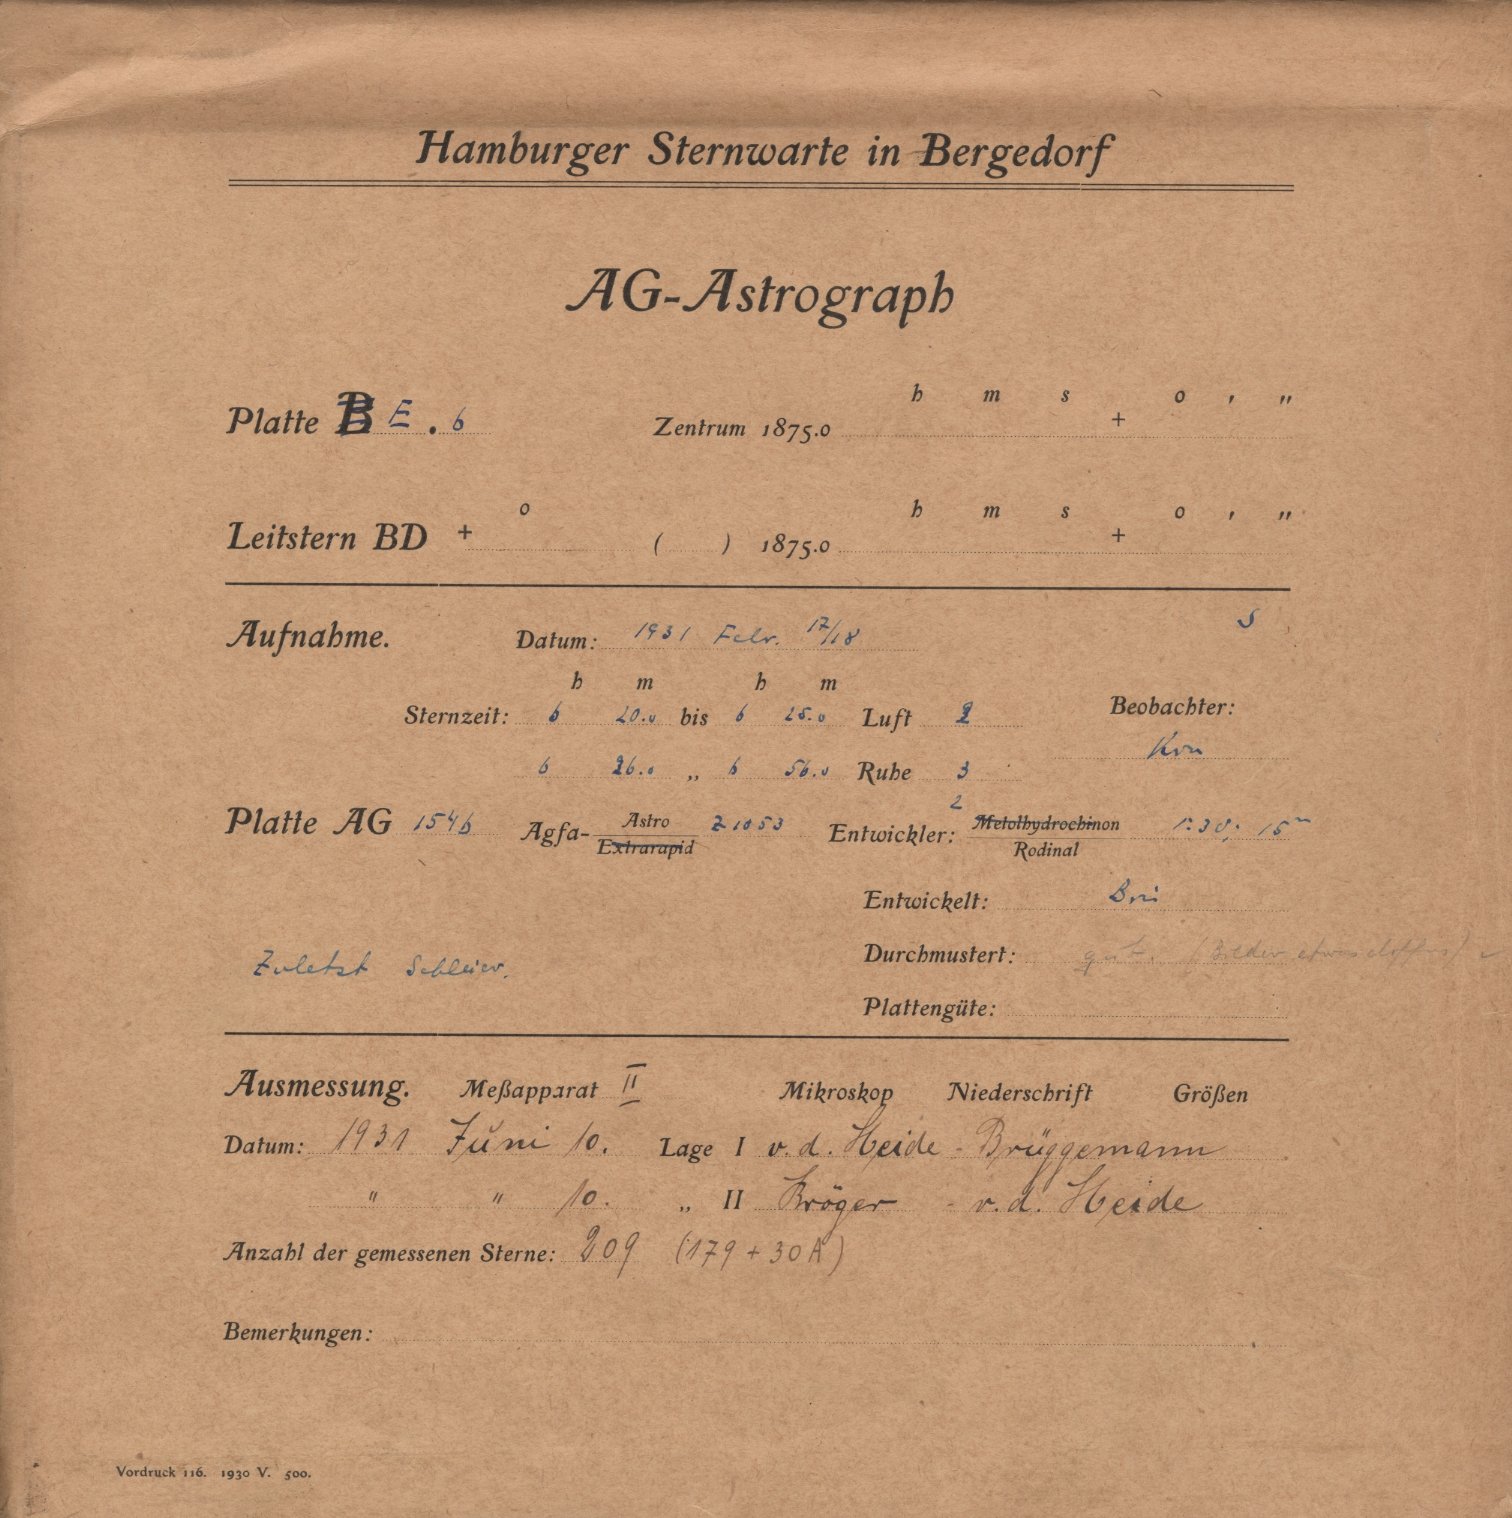 Hamburger Sternwarte in Bergedorf
AG-Astrograph
h m s o ' "
Platte B E . 6 Zentrum 1875.0 +
o h m s o ' "
Leitstern BD + ( ) 1875.0 +
S
Aufnahme. Datum: 1931 Febr. 17/18
h m h m
Sternzeit: 6 20.0 bis 6 25.0 Luft 2 Beobachter:
6 26.0 „ 6 56.0 Ruhe 3
2
Platte AG 1546 Agfa- Astro Z 1053 Entwickler: Metolhydrochinon 1:30; 15m
Extrarapid Rodinal
Entwickelt:
Durchmustert: gut. (Bilder etwas
Zuletzt Schleier.
Plattengüte:
Ausmessung. Meßapparat II Mikroskop Niederschrift Größen
Datum: 1931 Juni 10. Lage I v. d. Heide - Brüggemann
" " 10. „ II Kröger - v. d. Heide
Anzahl der gemessenen Sterne: 209 (179 + 30 A)
Bemerkungen:
Vordruck 116. 1930 V. 500.